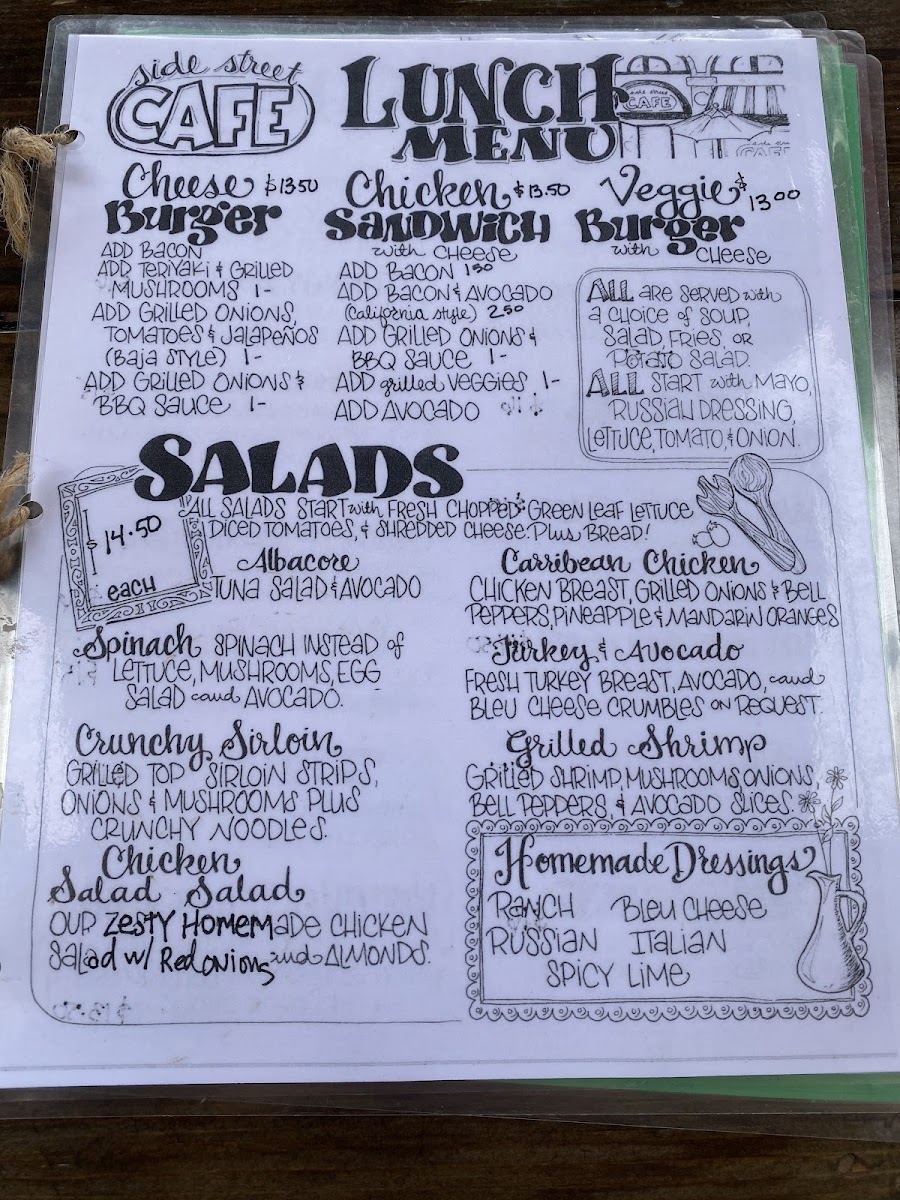 side street
CAFE
LUNCH
MENU
side street
CAFE
side street
CAFE
Cheese $13.50
Burger
ADD BACON
ADD TERIYAKI & GRILLED
MUSHROOMS 1-
ADD GRILLED ONIONS,
TOMATOES & JALAPEÑOS
(BAJA STYLE) 1-
ADD GRILLED ONIONS &
BBQ SAUCE 1-
Chicken $13.50
SANDWICH
with CHEESE
ADD BACON 150
ADD BACON & AVOCADO
(California style) 250
ADD GRILLED ONIONS &
BBQ SAUCE 1-
ADD grilled VEGGIES 1-
ADD AVOCADO
Veggie $13.00
Burger
with CHEESE
ALL are served with
a choice of soup,
SALAD, FRIES, OR
POTATO SALAD.
ALL START with MAYO,
RUSSIAN DRESSING,
LETTUCE, TOMATO, & ONION.
SALADS
ALL SALADS START with FRESH CHOPPED GREEN LEAF LETTUCE
DICED TOMATOES, & SHREDDED CHEESE. Plus BREAD!
$14.50
EACH
Albacore
TUNA SALAD & AVOCADO
Spinach SPINACH INSTEAD of
LETTUCE, MUSHROOMS, EGG
SALAD and AVOCADO.
Crunchy Sirloin
GRILLED TOP SIRLOIN STRIPS,
ONIONS & MUSHROOMS PLUS
CRUNCHY NOODLES.
Chicken
Salad Salad
OUR ZESTY HOMEMADE CHICKEN
SALad w/ Red onions and ALMONDS.
Carribean Chicken
CHICKEN BREAST, GRILLED ONIONS & BELL
PEPPERS, PINEAPPLE & MANDARIN ORANGES
Turkey & Avocado
FRESH TURKEY BREAST, AVOCADO, and
BLEU CHEESE CRUMBLES ON REQUEST.
Grilled Shrimp
GRILLED SHRIMP, MUSHROOMS, ONIONS,
BELL PEPPERS, & AVOCADO SLICES.
Homemade Dressings
RANCH BLEU CHEESE
RUSSIAN ITALIAN
SPICY LIME